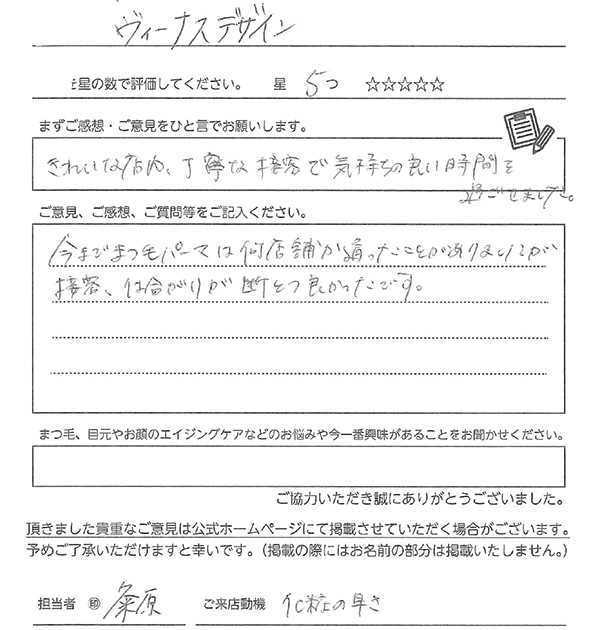 ヴィーナスデザイン
星の数で評価してください。 星 5つ ☆☆☆☆☆
まずご感想・ご意見をひと言でお願いします。
きれいな店内、丁寧な接客で気持ちの良い時間を
過ごせました。
ご意見、ご感想、ご質問等をご記入ください。
今までまつ毛パーマは何店舗か通ったことがありましたが
接客、仕合がりが断とつ良かったです。
まつ毛、目元やお顔のエイジングケアなどのお悩みや今一番興味があることをお聞かせください。
ご協力いただき誠にありがとうございました。
頂きました貴重なご意見は公式ホームページにて掲載させていただく場合がございます。
予めご了承いただけますと幸いです。（掲載の際にはお名前の部分は掲載いたしません。）
担当者 ㊞ 粂原 ご来店動機 化粧の早さ